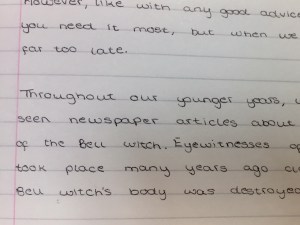 However, like with any good advice
you need it most, but when we
far too late.
Throughout our younger years,
seen newspaper articles about
of the Bell Witch. Eyewitnesses
took place many years ago
Bell Witch's body was destroyed